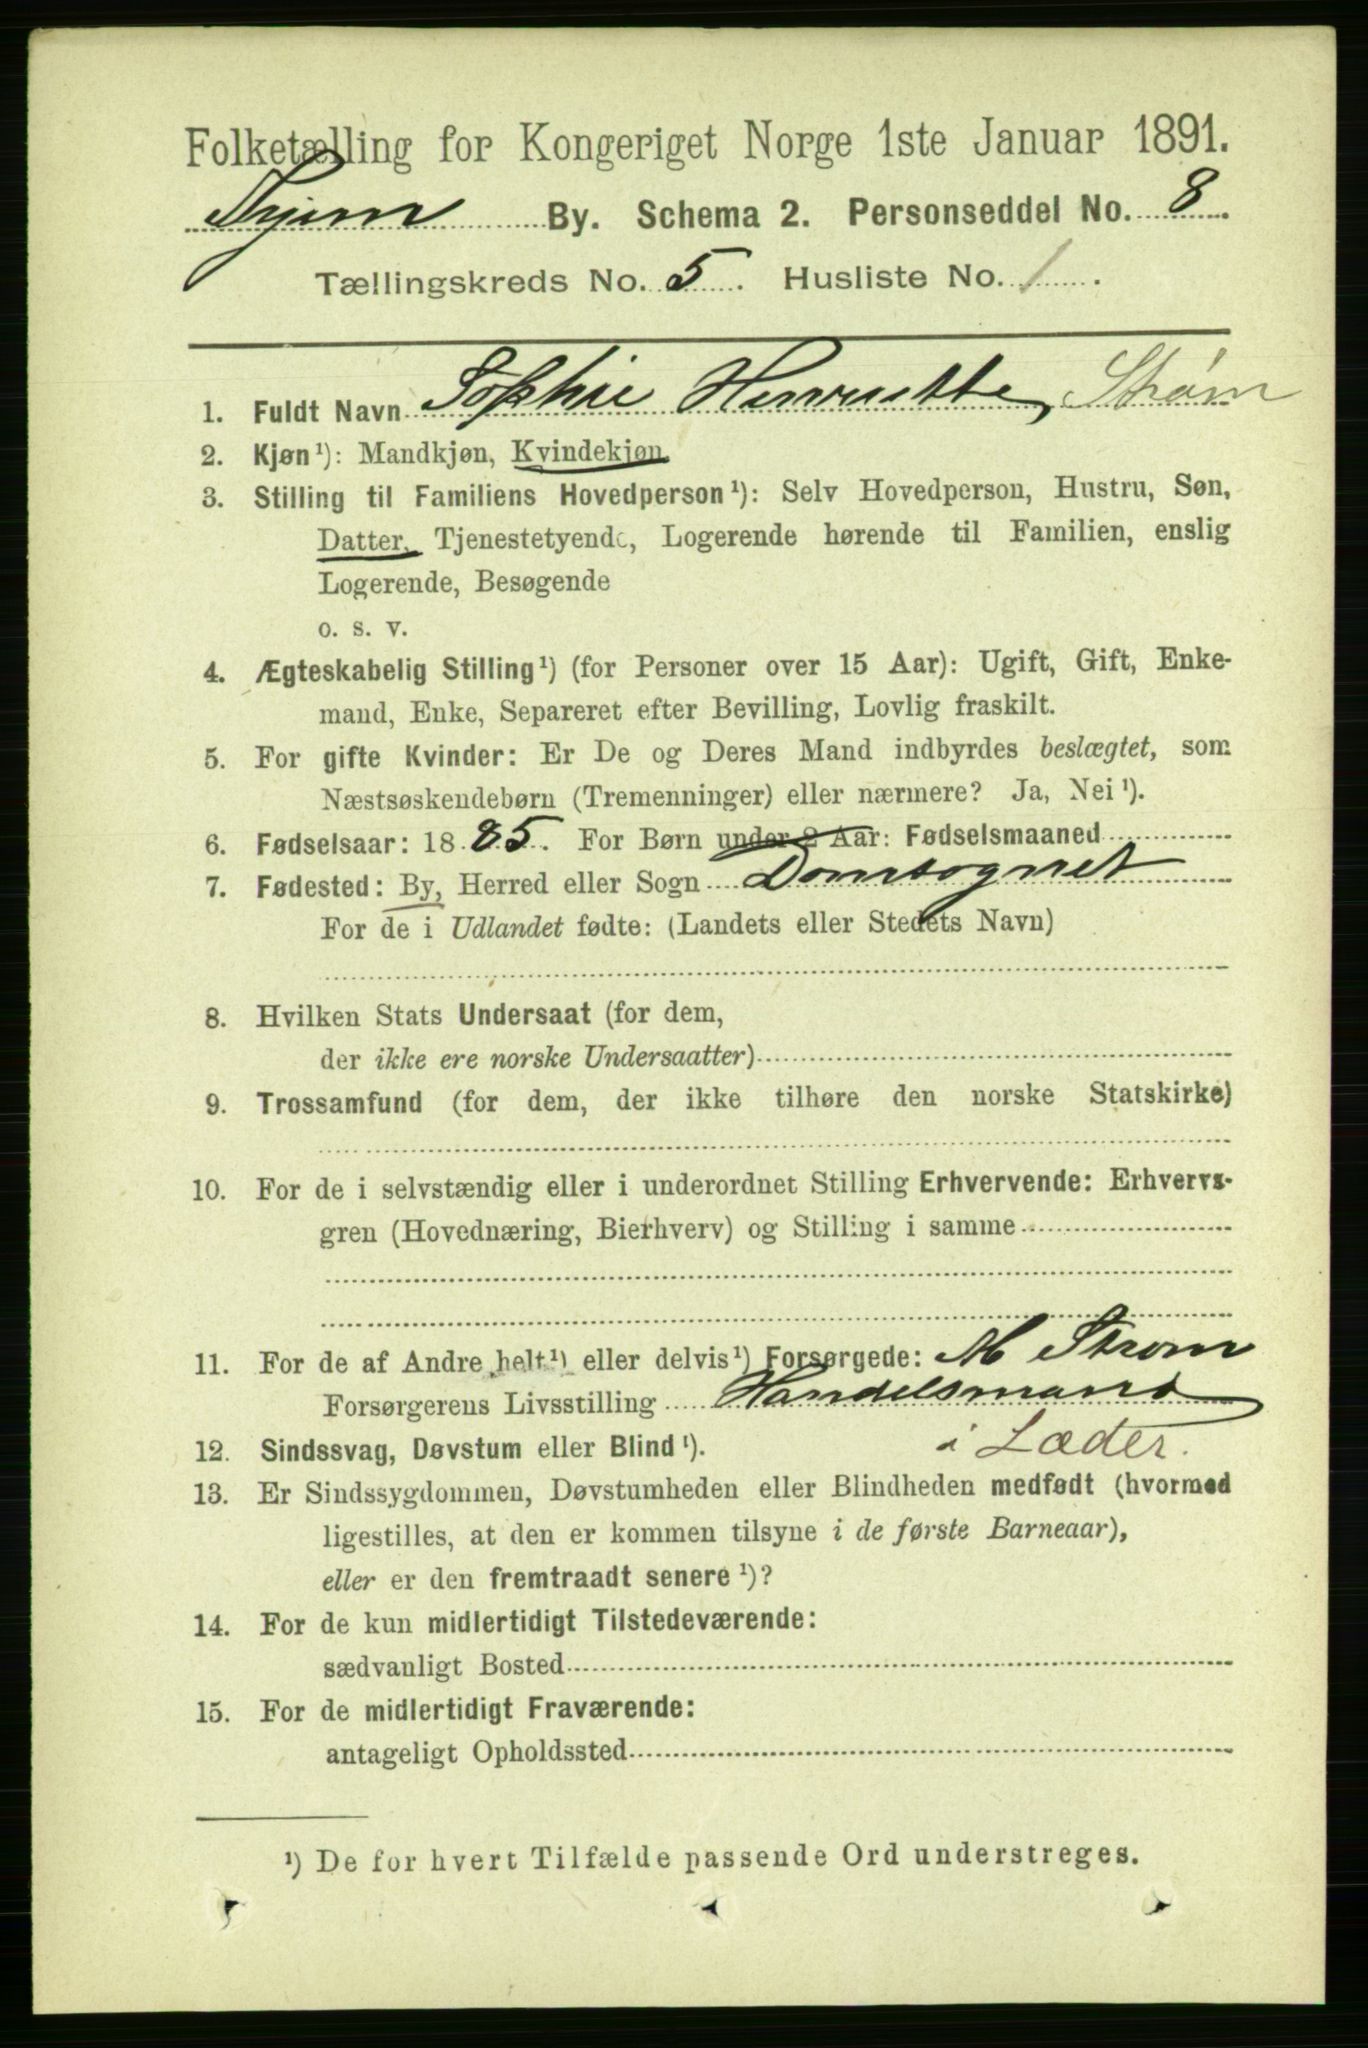 Folketælling for Kongeriget Norge 1ste Januar 1891.
Thjem By. Schema 2. Personseddel No. 8.
Tællingskreds No. 5. Husliste No. 1.
1. Fuldt Navn Sophie Henriette, Strøm
2. Kjøn¹): Mandkjøn, Kvindekjøn
3. Stilling til Familiens Hovedperson¹): Selv Hovedperson, Hustru, Søn,
Datter, Tjenestetyende, Logerende hørende til Familien, enslig
Logerende, Besøgende
o. s. v.
4. Ægteskabelig Stilling¹) (for Personer over 15 Aar): Ugift, Gift, Enke-
mand, Enke, Separeret efter Bevilling, Lovlig fraskilt.
5. For gifte Kvinder: Er De og Deres Mand indbyrdes beslægtet, som
Næstsøskendebørn (Tremenninger) eller nærmere? Ja, Nei¹).
6. Fødselsaar: 1885. For Børn under 2 Aar: Fødselsmaaned
7. Fødested: By, Herred eller Sogn Domsognet
For de i Udlandet fødte: (Landets eller Stedets Navn)
8. Hvilken Stats Undersaat (for dem,
der ikke ere norske Undersaatter)
9. Trossamfund (for dem, der ikke tilhøre den norske Statskirke)
10. For de i selvstændig eller i underordnet Stilling Erhvervende: Erhvervs-
gren (Hovednæring, Bierhverv) og Stilling i samme
11. For de af Andre helt¹) eller delvis¹) Forsørgede: M Strøm
Forsørgerens Livsstilling Handelsmand
12. Sindssvag, Døvstum eller Blind¹). i Læder.
13. Er Sindssygdommen, Døvstumheden eller Blindheden medfødt (hvormed
ligestilles, at den er kommen tilsyne i de første Barneaar),
eller er den fremtraadt senere¹)?
14. For de kun midlertidigt Tilstedeværende:
sædvanligt Bosted
15. For de midlertidigt Fraværende:
antageligt Opholdssted
¹) De for hvert Tilfælde passende Ord understreges.